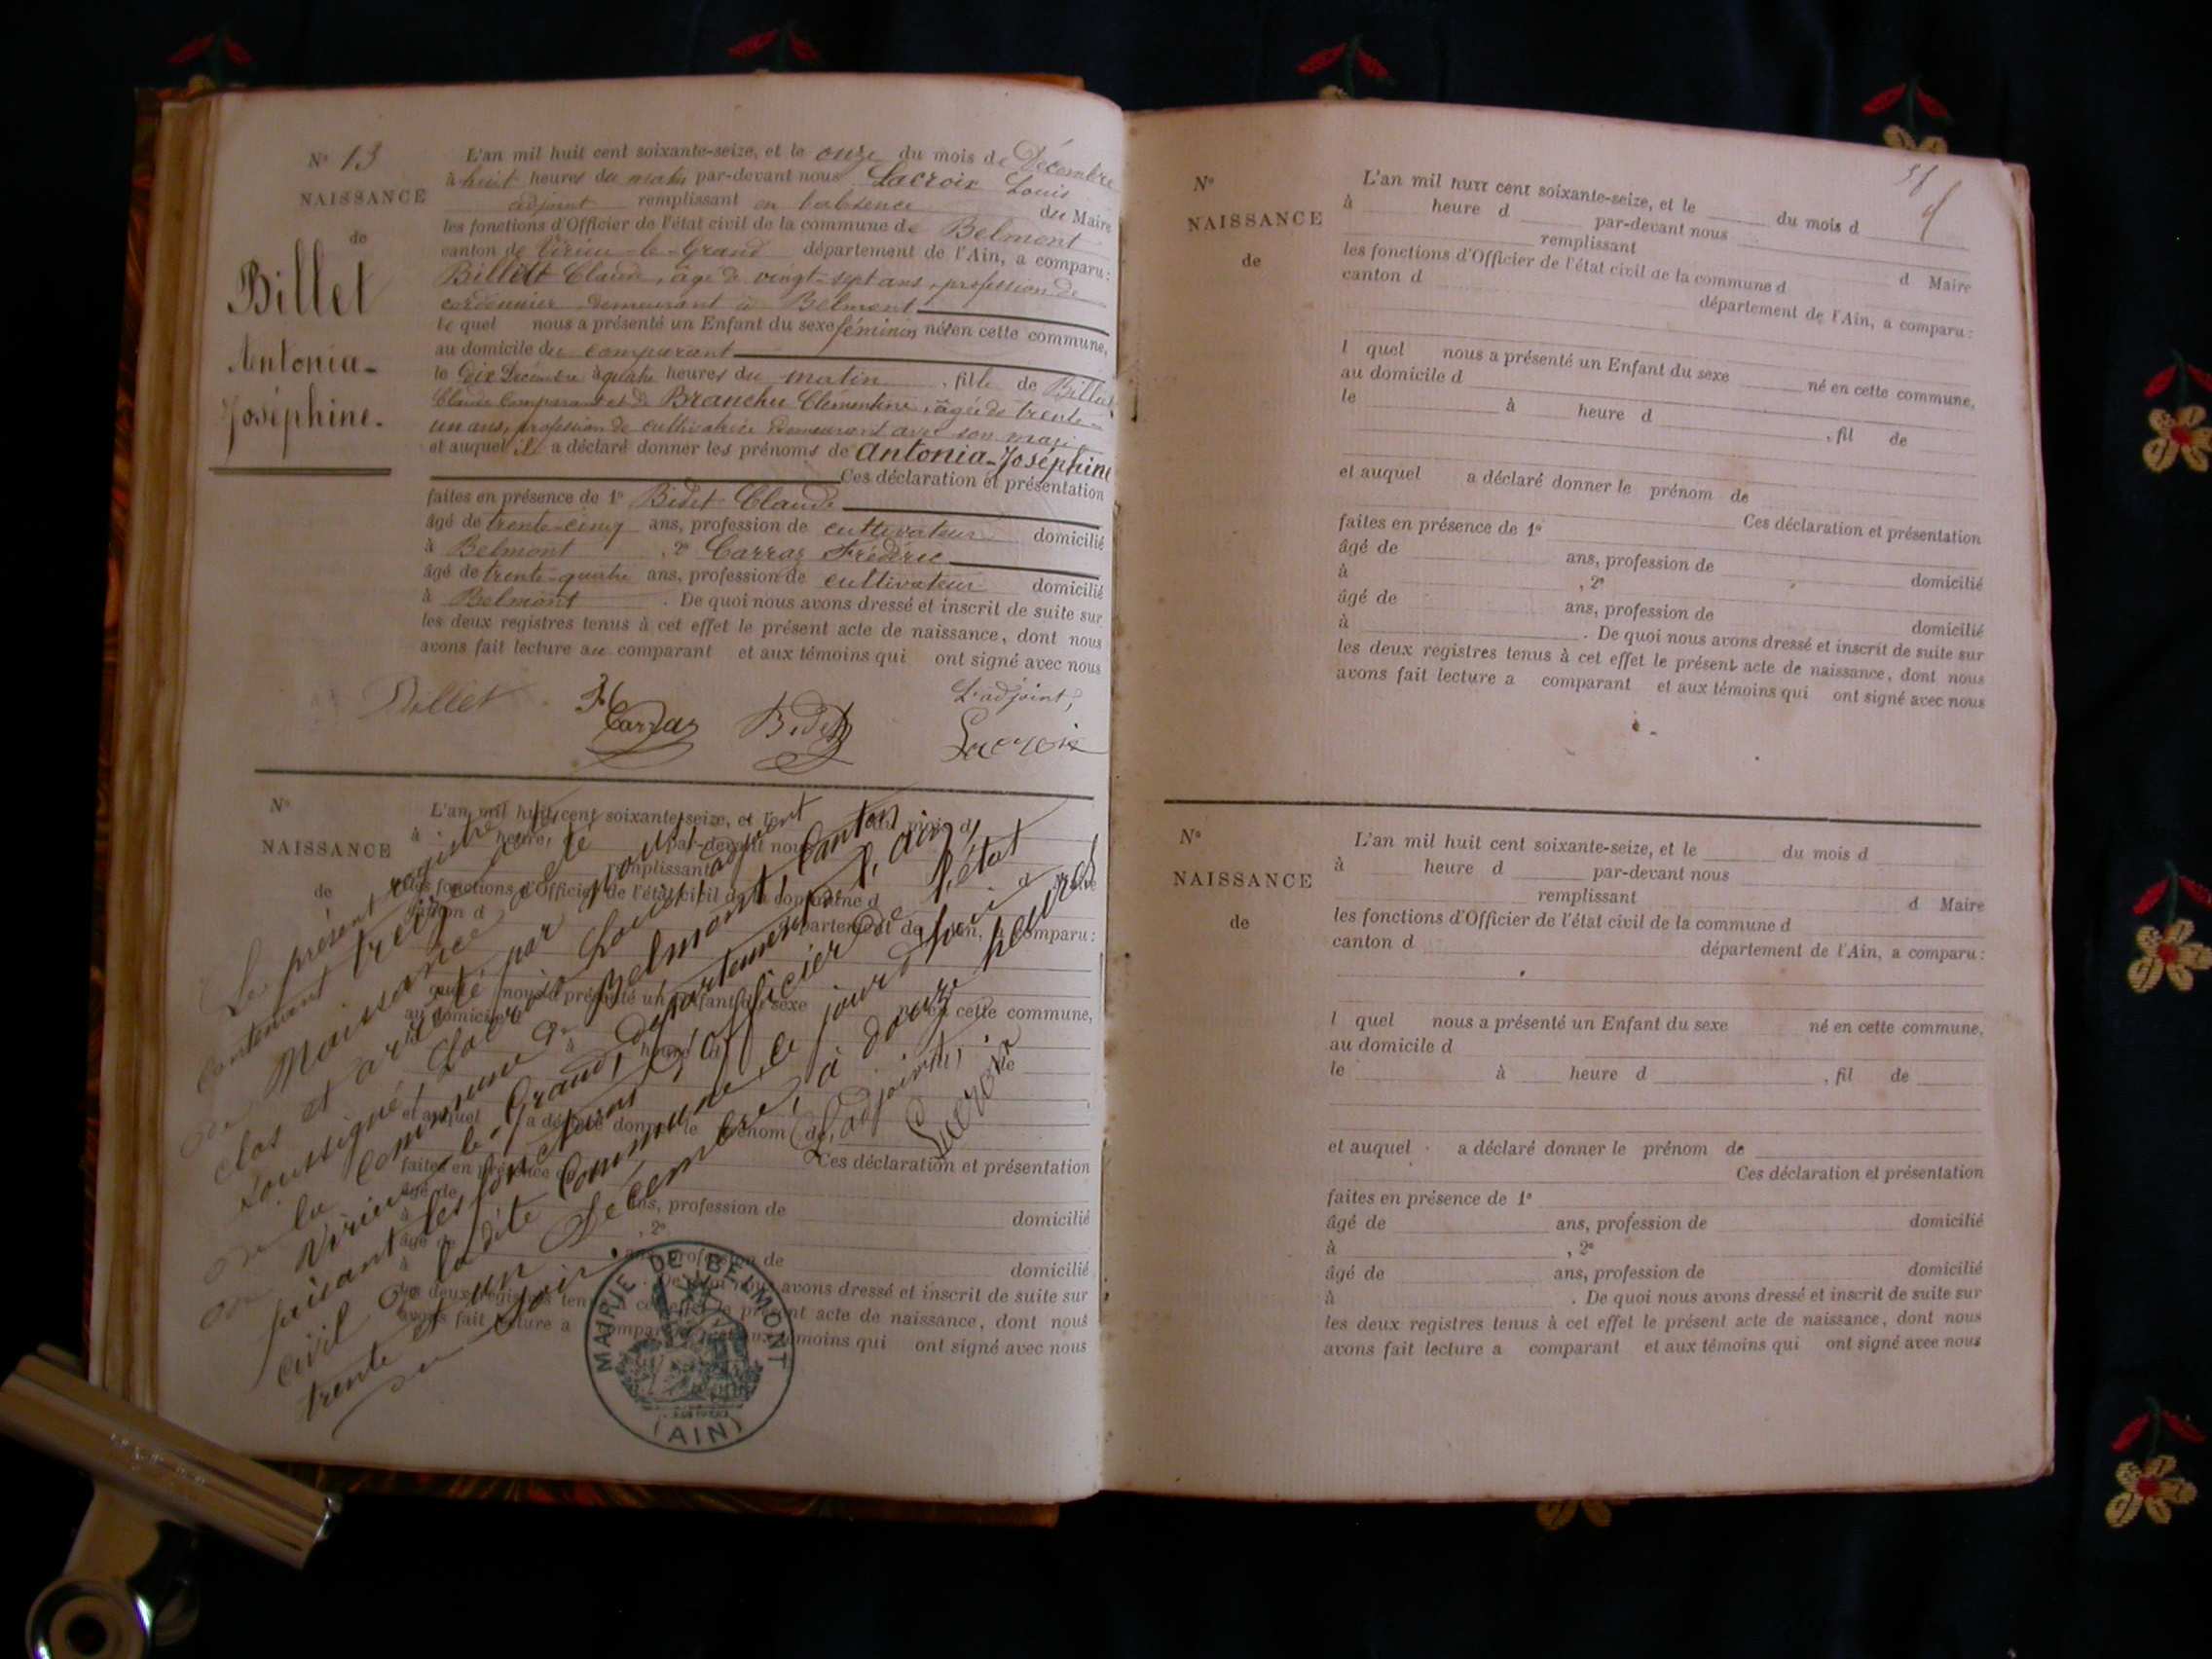 N° 13
NAISSANCE
de
Billet
Antonia-
Joséphine.
L'an mil huit cent soixante-seize, et le onze du mois de Décembre
à huit heures du matin par-devant nous Lacroix Louis
adjoint remplissant en l'absence du Maire
les fonctions d'Officier de l'état civil de la commune de Belmont
canton de Virieu-le-Grand département de l'Ain, a comparu:
Billet Claude, âgé de vingt-sept ans, profession de
cordonnier demeurant à Belmont
le quel nous a présenté un Enfant du sexe féminin né en cette commune,
au domicile du comparant
le dix Décembre à quatre heures du matin, fille de Billet
Claude comparant et de Branche Clémentine, âgée de trente-
un ans, profession de cultivatrice demeurant avec son mari
et auquel il a déclaré donner les prénoms de Antonia-Joséphine
Ces déclaration et présentation
faites en présence de 1° Bidet Claude
âgé de trente-cinq ans, profession de cultivateur domicilié
à Belmont, 2° Carraz Frédéric
âgé de trente-quatre ans, profession de cultivateur domicilié
à Belmont. De quoi nous avons dressé et inscrit de suite sur
les deux registres tenus à cet effet le présent acte de naissance, dont nous
avons fait lecture au comparant et aux témoins qui ont signé avec nous
Billet Carraz Bidet L'adjoint,
Lacroix
N°
NAISSANCE
de
L'an mil huit cent soixante-seize, et le du mois d
à heure par-devant nous
remplissant d Maire
les fonctions d'Officier de l'état civil de la commune d
canton d département de l'Ain, a comparu:
quel nous a présenté un Enfant du sexe né en cette commune,
au domicile d
à heure d de
et auquel a déclaré donner le prénom de
Ces déclaration et présentation
faites en présence de
âgé de ans, profession de domicilié
à , 2°
âgé de ans, profession de domicilié
à De quoi nous avons dressé et inscrit de suite sur
les deux registres tenus à cet effet le présent acte de naissance, dont nous
avons fait lecture a comparant et aux témoins qui ont signé avec nous
Le présent registre
contenant treize actes
de Naissance a été
clos et arrêté par nous
soussigné Lacroix Louis, adjoint
de la commune de Belmont, Canton
de Virieu-le-Grand, département de l'Ain,
faisant les fonctions d'officier de l'état
civil de ladite Commune, ce jourd'hui
trente et un Décembre, à douze heures
du soir.
L'adjoint,
Lacroix
MAIRIE DE BELMONT
(AIN)
N°
NAISSANCE
de
L'an mil huit cent soixante-seize, et le du mois d
à heure d par-devant nous
remplissant d Maire
les fonctions d'Officier de l'état civil de la commune d
canton d département de l'Ain, a comparu:
l quel nous a présenté un Enfant du sexe né en cette commune,
au domicile d
le à heure d , fil de
et auquel a déclaré donner le prénom de
Ces déclaration et présentation
faites en présence de 1°
âgé de ans, profession de domicilié
à , 2°
âgé de ans, profession de domicilié
à . De quoi nous avons dressé et inscrit de suite sur
les deux registres tenus à cet effet le présent acte de naissance, dont nous
avons fait lecture a comparant et aux témoins qui ont signé avec nous
N°
NAISSANCE
de
L'an mil huit cent soixante-seize, et le du mois d
à heure d par-devant nous
remplissant d Maire
les fonctions d'Officier de l'état civil de la commune d
canton d département de l'Ain, a comparu:
l quel nous a présenté un Enfant du sexe né en cette commune,
au domicile d
le à heure d , fil de
et auquel a déclaré donner le prénom de
Ces déclaration et présentation
faites en présence de 1°
âgé de ans, profession de domicilié
à , 2°
âgé de ans, profession de domicilié
à . De quoi nous avons dressé et inscrit de suite sur
les deux registres tenus à cet effet le présent acte de naissance, dont nous
avons fait lecture a comparant et aux témoins qui ont signé avec nous